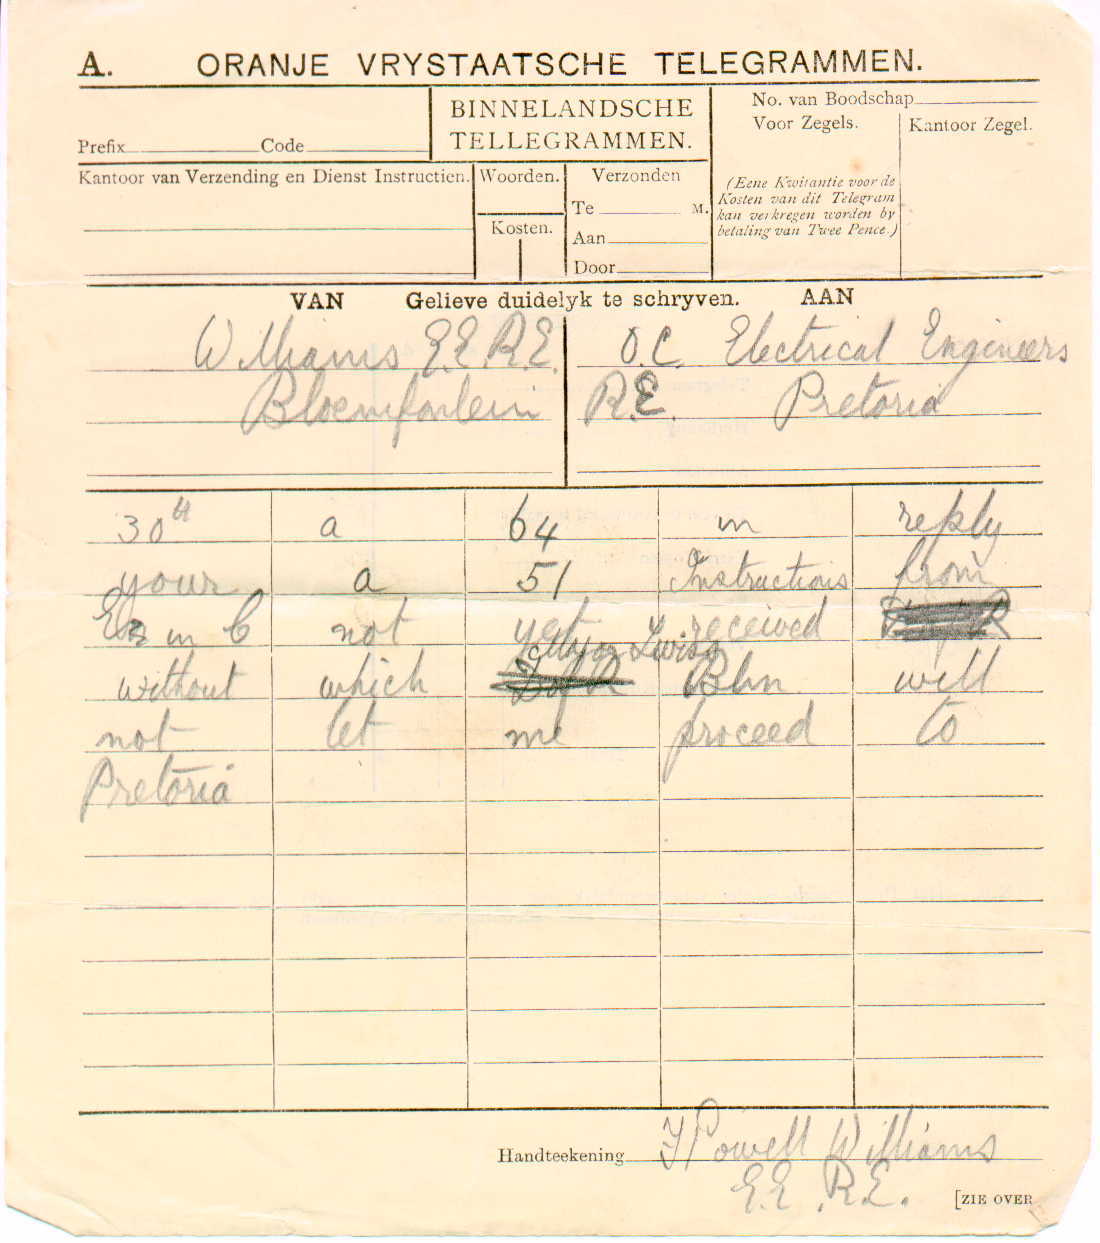 A. ORANJE VRYSTAATSCHE TELEGRAMMEN.
Prefix Code
BINNELANDSCHE
TELLEGRAMMEN.
No. van Boodschap
Voor Zegels.
Kantoor Zegel.
(Eene Kwitantie voor de
Kosten van dit Telegram
kan verkregen worden by
betaling van Twee Pence.)
Kantoor van Verzending en Dienst Instructien.
Woorden.
Kosten.
Verzonden
Te M.
Aan
Door
VAN Gelieve duidelyk te schryven. AAN
Williams E.E. R.E.
Bloemfontein
O.C. Electrical Engineers
R.E. Pretoria
30th a 64 in reply
your a 51 Instructions from
E in C not yet received
Major
without which Bln will
not let me proceed to
Pretoria
Handteekening Powell Williams
E.E. R.E.
[ZIE OVER